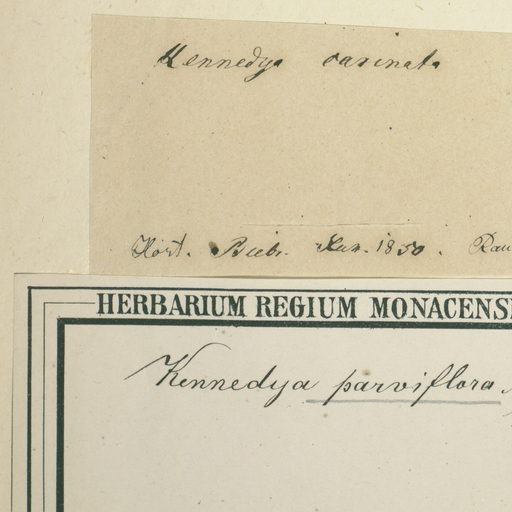 Kennedya carinata
Hort. Bieb. Jun. 1850. Rau
HERBARIUM REGIUM MONACENS
Kennedya parviflora